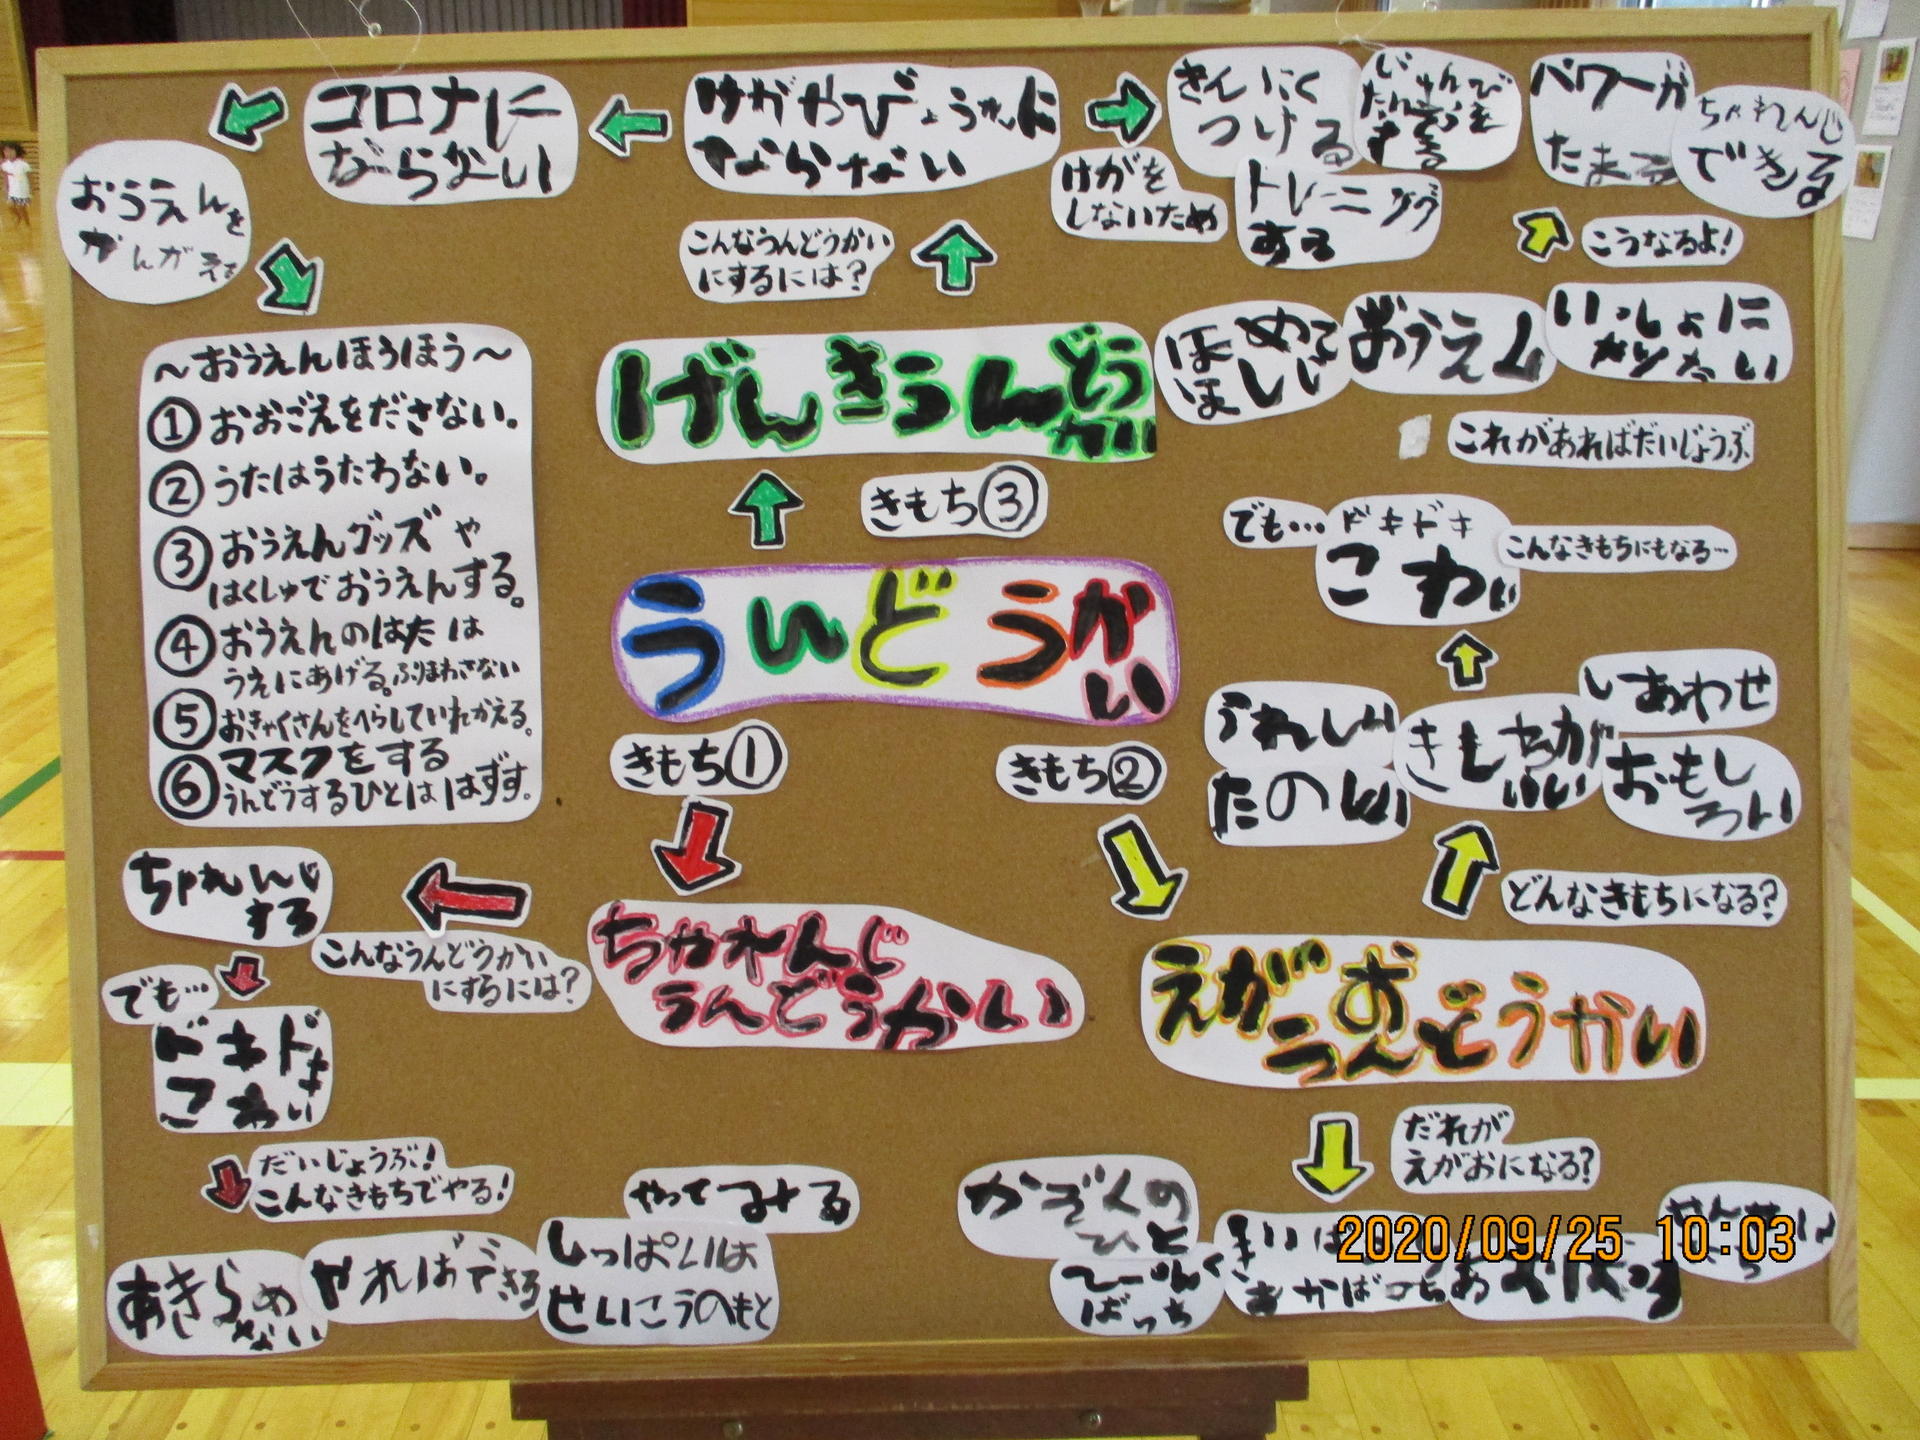 コロナに
ならない
けがやびょうきに
ならない
きんにく
つける
じゅんび
たいそうを
する
パワーが
たまる
ちゃれんじ
できる
おうえんを
かんがえる
けがを
しないため
トレーニング
する
こんなうんどうかい
にするには?
こうなるよ!
～おうえんほうほう～
①おおごえをださない。
②うたはうたわない。
③おうえんグッズや
はくしゅでおうえんする。
④おうえんのはたは
うえにあげる。ふりまわさない
⑤おきゃくさんをへらしていれかえる。
⑥マスクをする
うんどうするひとははずす。
げんきうんどう
かい
ほめて
ほしい
おうえん
いっしょに
やりたい
これがあればだいじょうぶ
きもち③
でも…
ドキドキ
こわい
こんなきもちにもなる…
うんどうか
い
きもち①
きもち②
うれしい
たのしい
きもちが
いい
しあわせ
おもし
ろい
どんなきもちになる?
ちゃれんじ
する
こんなうんどうかい
にするには?
ちゃれんじ
うんどうかい
えがお
うんどうかい
でも…
ドキドキ
こわい
だいじょうぶ!
こんなきもちでやる!
だれが
えがおになる?
やってみる
あきらめ
ない
やればできる
しっぱいは
せいこうのもと
かぞくの
ひと
2020/09/25 10:03